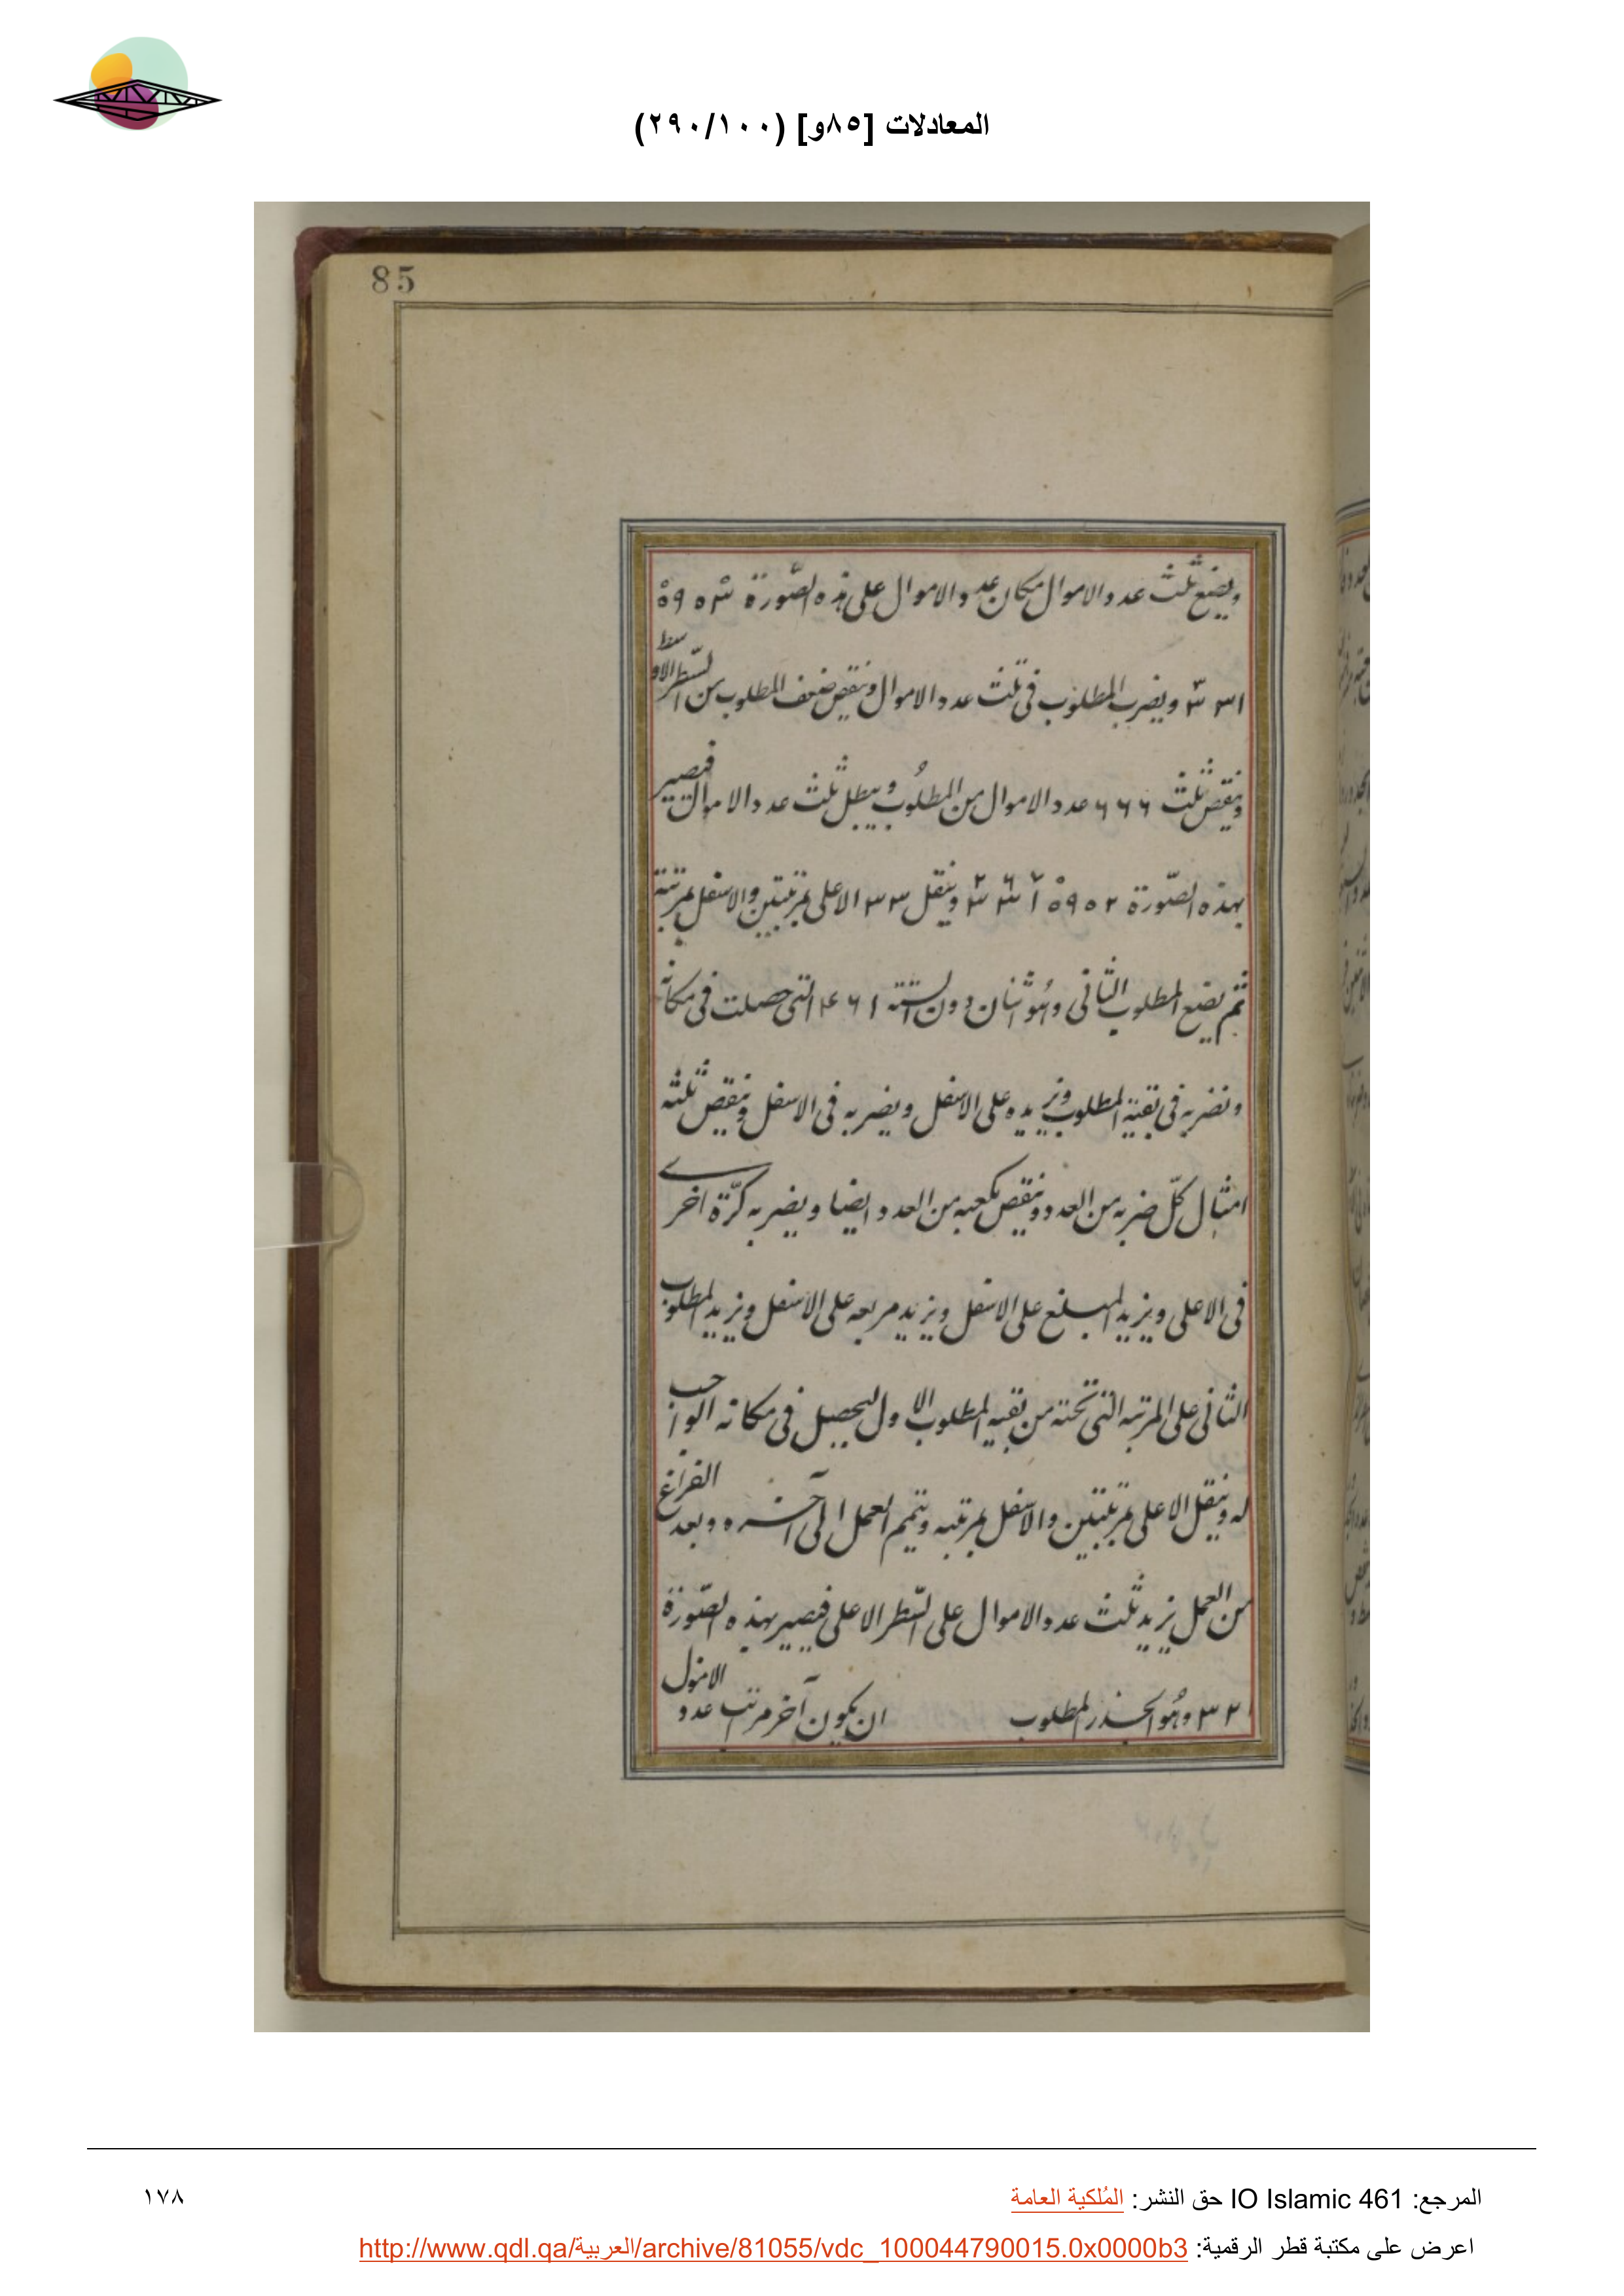 المعادلات [٨٥و] (٢٩٠/١٠٠)
85
ويضع ثلث عدد الاموال مكان عدد الاموال على هذه الصّورة
ويضرب المطلوب فى ثلث عدد الاموال وننقص ضعف المطلوب من السّطر الاوسط
وننقص ثلث ٦٦٦ عدد الاموال من المطلُوب ويبطل ثلث عدد الاموال فيصير
بهذه الصّورة وينقل ٣٣ الاعلى بمرتبتين والاسفل بمرتبة
ثم يضع المطلوب الثانى وهُو اثنان دون الستة ١ ٦ ٤ التى حصلت فى مكانه
ونضربه فى بقية المطلوب ونزيده على الاسفل ويضربه فى الاسفل وننقص ثلثه
امثال كلّ ضربه من العدد وننقص مكعبه من العدد ايضا ويضربه كرّة اخرى
فى الاعلى ويزيد المبلغ على الاسفل ويزيد مربعه على الاسفل ويزيد المطلوب
الثانى على المرتبه التى تحته من بقيه المطلوب الاول ليحصل فى مكانه الواجب
له وينقل الاعلى بمرتبتين والاسفل بمرتبه ويتمم العمل الى آخره وبعد الفراغ
من العمل يزيد ثلث عدد الاموال على السّطر الاعلى فيصير بهذه الصّورة
٣٢١ وهُو الجذر المطلوب ان يكون آخر مراتب عدد الاموال
المرجع: IO Islamic 461 حق النشر: المُلكية العامة
١٧٨
اعرض على مكتبة قطر الرقمية: http://www.qdl.qa/العربية/archive/81055/vdc_100044790015.0x0000b3